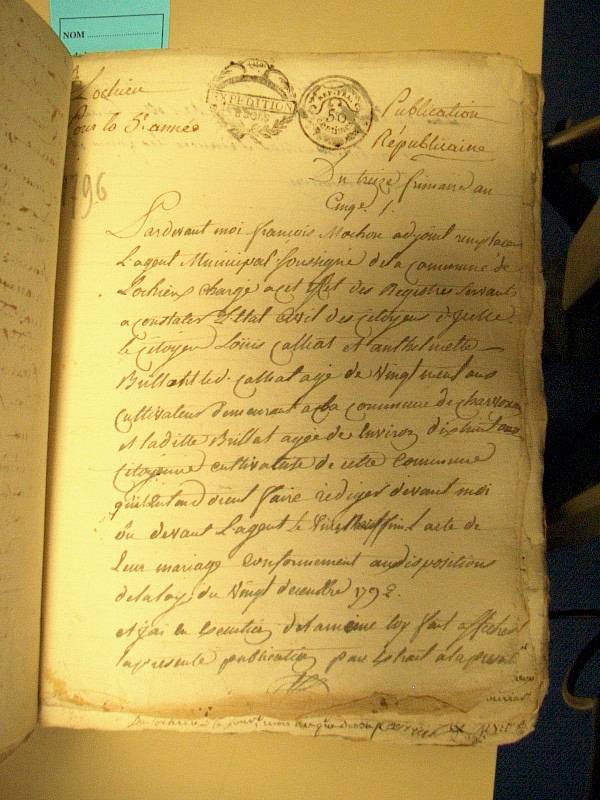 NOM
Lochieu
Pour la 5e. année
1796
EXPEDITION
50
centimes
Publication
Républicaine
Du treize frimaire an
Cinq.
Pardevant moi françois Mochon adjoint remplacant
L'agent Municipal Soussigné de la commune de
Lochieu chargé a cet effet des Registres Servants
a constater L'Etat Civil des citoyens
le citoyen Louis Calliat et anthelmette
Brillat led. Calliat agé de Vingt neuf ans
cultivateur demeurant a la commune de
et laditte Brillat agée de Environ dixhuit ans
citoyenne cultivatrice de cette Commune
faire rediger devant moi
ou devant L'agent le L'acte de
leur mariage conformement aux dispositions
de la loy du Vingt decembre 1792.
et j'ai en Execution de la meme loy fait afficher
la presente publication par Extrait a la